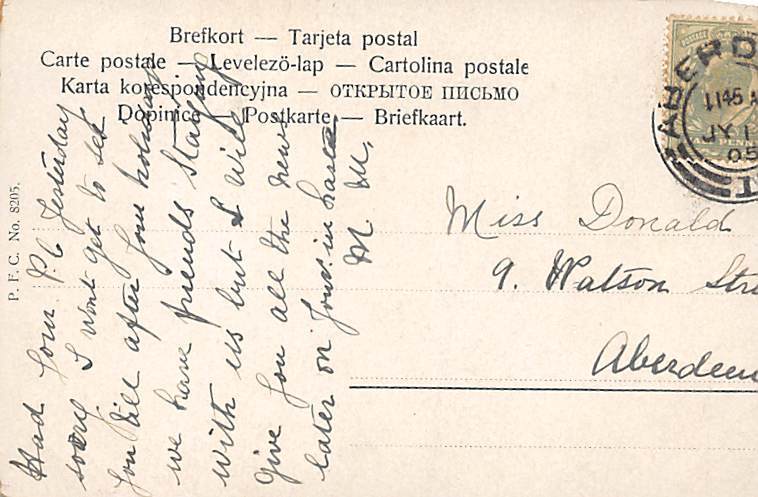 Brefkort — Tarjeta postal
Carte postale — Levelezö-lap — Cartolina postale
Karta korespondencyjna — ОТКРЫТОЕ ПИСЬМО
Dopinice — Postkarte — Briefkaart.
P. F. C. No. 8205.
ABERD
11 45 A
JY 1
05
Miss Donald
9. Watson Stre
Aberdeen
Had your P.C yesterday
sorry I wont get to see
you till after your holiday
we have friends staying
with us but I will
give you all the news
later on yours. in haste
M. M.